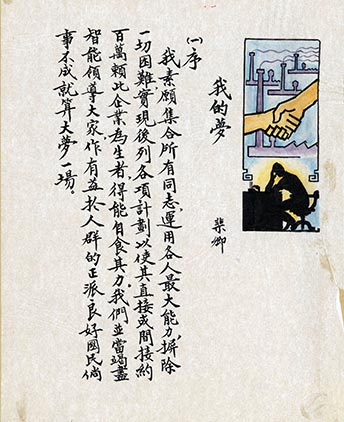 我的夢
棐卿
(一)序
我素願集合所有同志,運用各人最大能力,摒除
一切困難,實現後列各項計劃以使其直接或間接約
百萬賴此企業為生者,得能自食其力,我們並當竭盡
智能領導大家,作有益於人群的正派良好國民,倘
事不成,就算大夢一場。